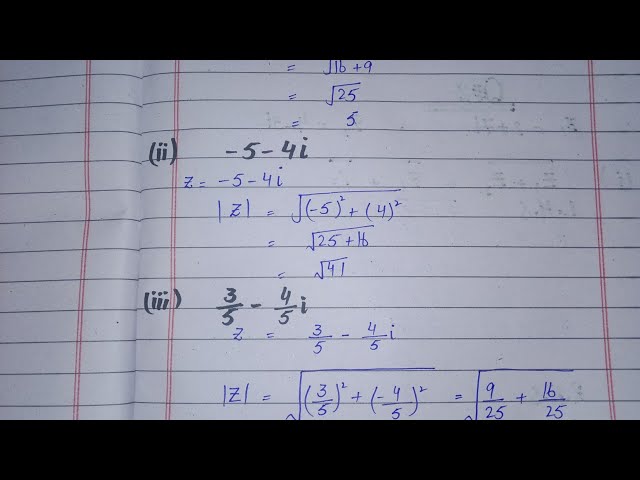 = √16+9
= √25
= 5
(ii) -5-4i
z = -5-4i
|Z| = √(-5)² + (4)²
= √25+16
= √41
(iii) 3/5 - 4/5 i
z = 3/5 - 4/5 i
|Z| = √(3/5)² + (-4/5)² = √9/25 + 16/25